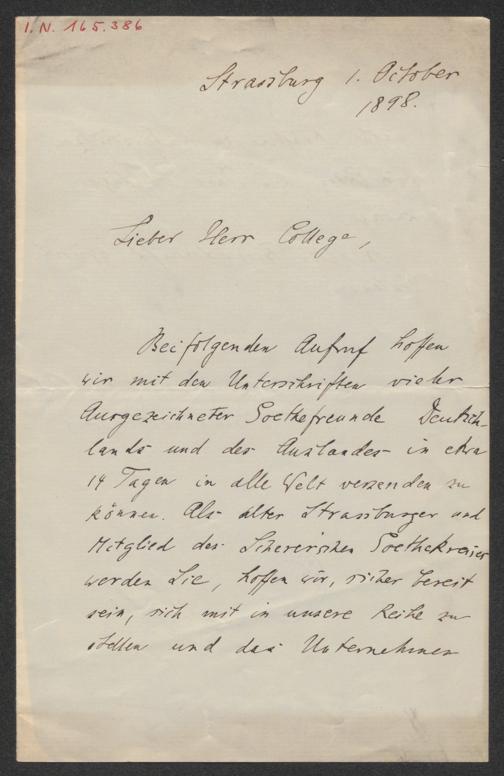 I. N. 165.386
Strassburg 1. October
1898.
Lieber Herr College,
Beifolgenden Aufruf hoffen
wir mit den Unterschriften vieler
Ausgezeichneter Goethefreunde Deutsch-
lands und des Auslandes in etwa
14 Tagen in alle Welt versenden zu
können. Als alter Strassburger und
Mitglied des Scherer'schen Goethekreises
werden Sie, hoffen wir, sicher bereit
sein, sich mit in unsere Reihe zu
stellen und das Unternehmen